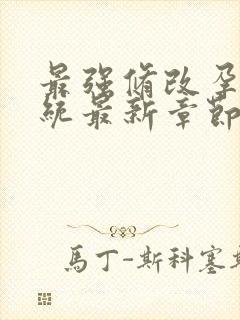 最强脩改孕
统最新章節
馬丁-斯科塞斯